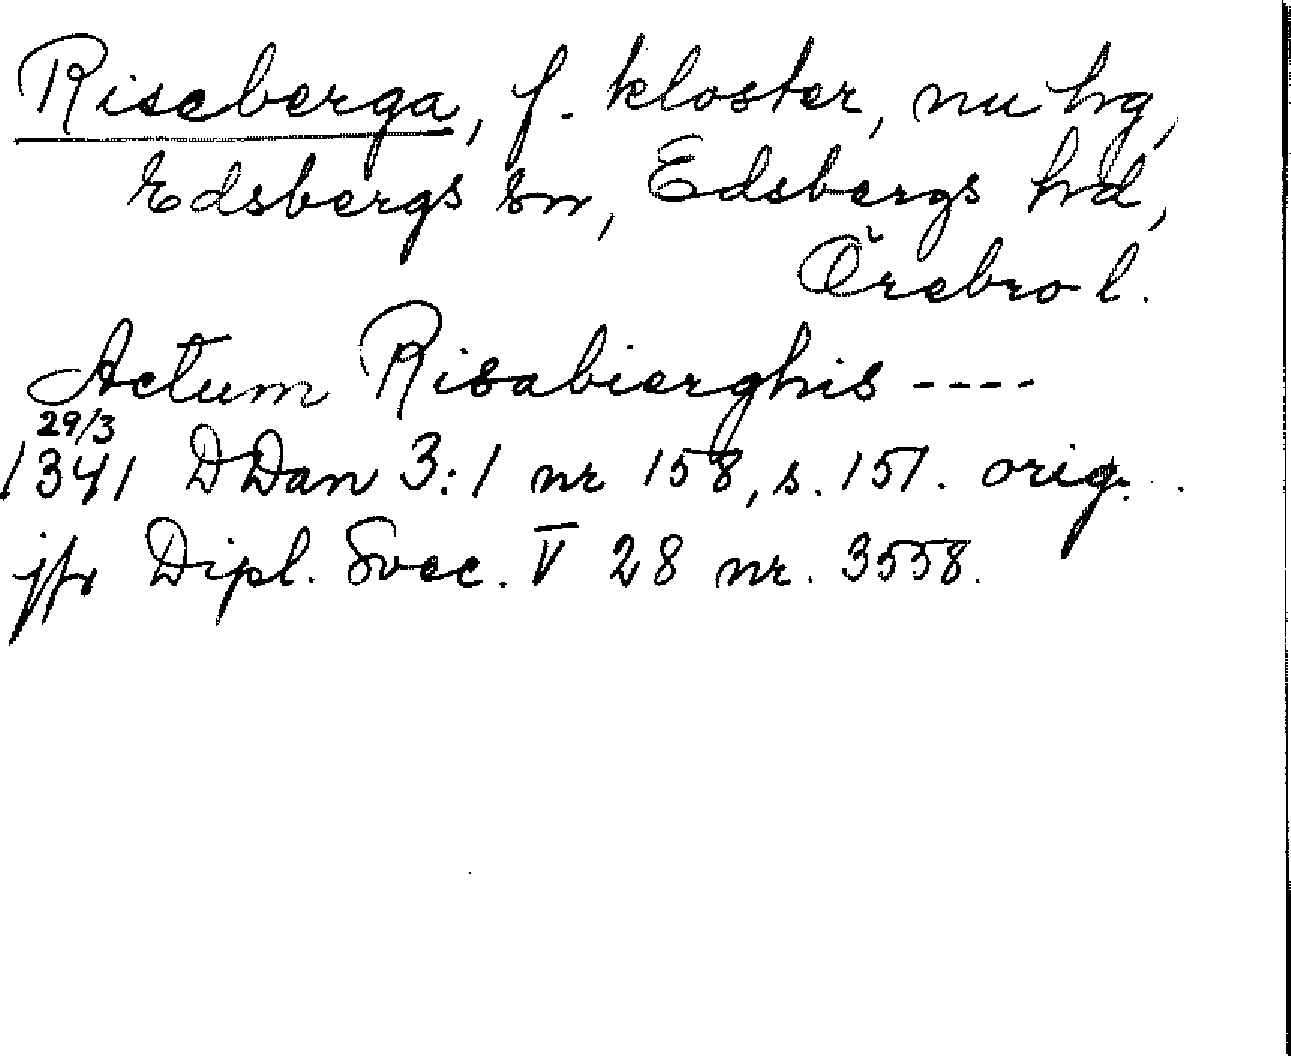 Riseberga, f. kloster, nu hg,
Edsbergs sn, Edsbergs hd,
Örebro l.
Actum Risabierghis ----
29/3
1341 DDan 3:1 nr 158, s. 151. orig.
jfr Dipl. Svec. V 28 nr. 3558.